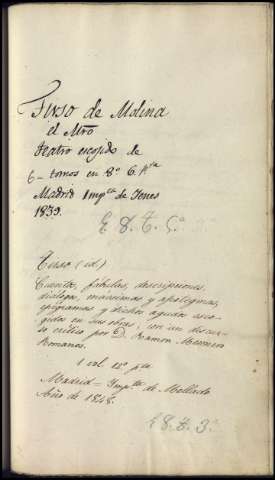 Tirso de Molina
el Mtro
Teatro escojido de
6 tomos en 8º 6. Pta
Madrid Impta de Yenes
1839.
E. 8. T. 5ª
Tirso (id.)
Cuentos, fabulas, descripciones,
dialogos, maximas y apotegmas,
epigramas y dichos agudos esco-
gidos en sus obras, con un discur-
so critico por D. Ramon Mesonero
Romanos.
1 vol. 12º pta
Madrid = Impta de Mellado
Año de 1848.
E 8. T. 3ª